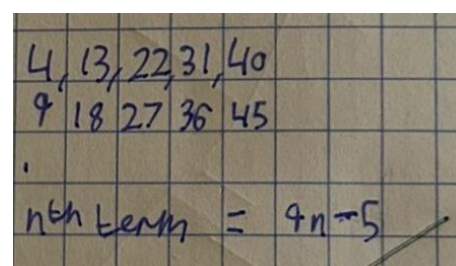 4, 13, 22, 31, 40
9 18 27 36 45
.
nth term = 9n-5